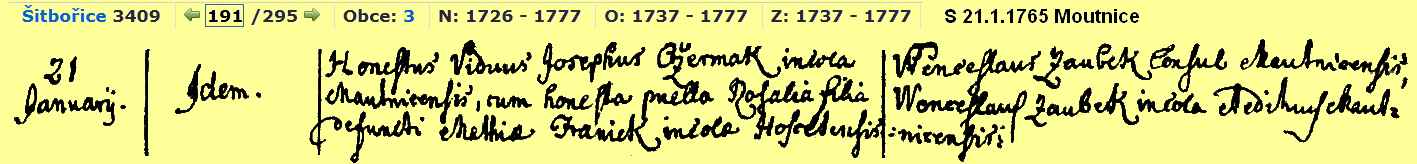 Šitbořice 3409 191 /295 Obce: 3 N: 1726 - 1777 O: 1737 - 1777 Z: 1737 - 1777 S 21.1.1765 Moutnice
21 Januarÿ. Idem. Honestus Viduus Josephus Czermak incola Wenceslaus Zaubek Consul Mautnicensis,
Mautnicensis, cum honesta puella Rosalia filia Wenceslaus Zaubek incola Aedituus Maut=
defuncti Mathiæ Franick incolæ =nicensis: